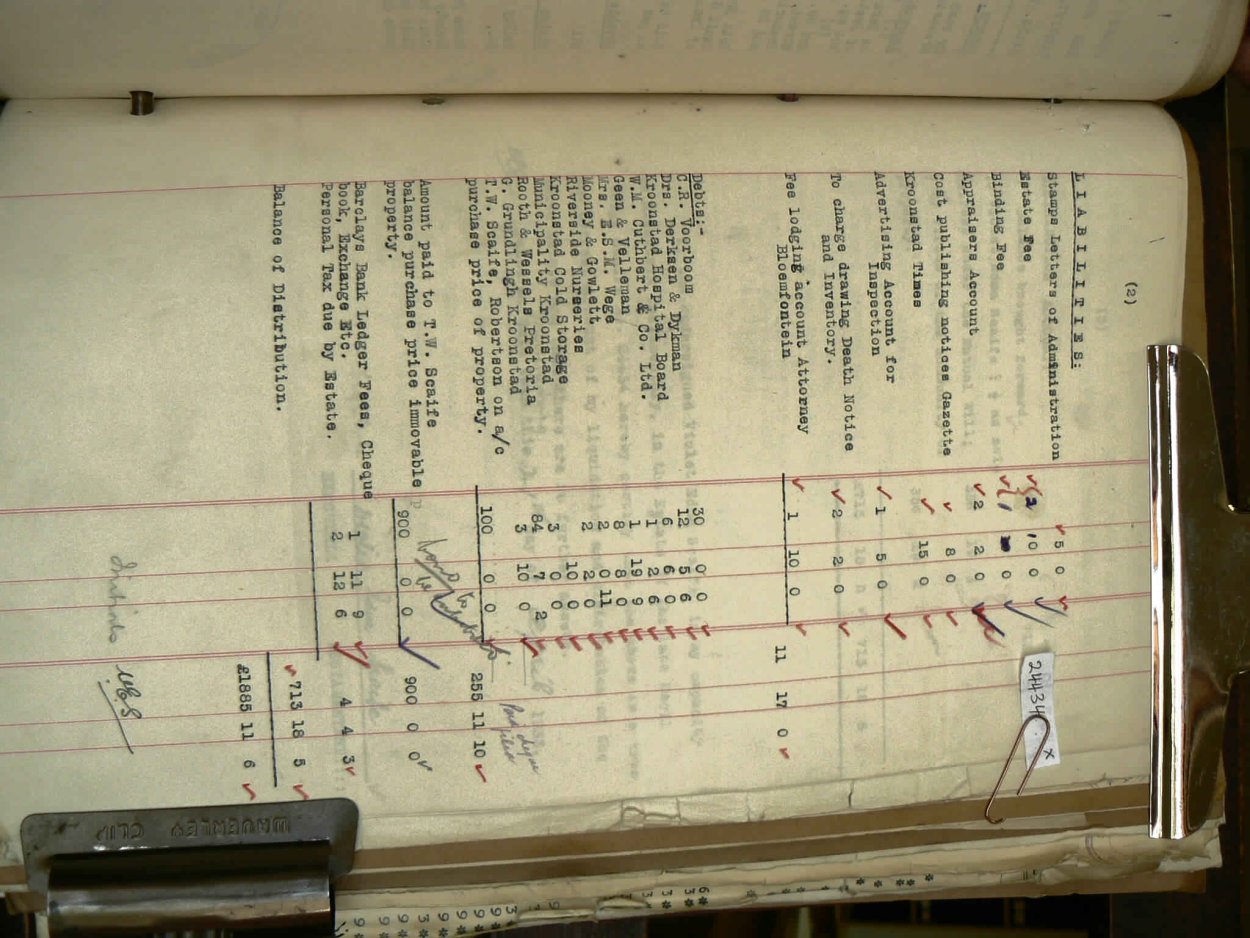 (2)
LIABILITIES:
Stamps Letters of Administration 5 0
Estate Fee 2 10 0
Binding Fee 1 0
Appraisers Account 2 2 0
Cost publishing notices Gazette 8 0
Kroonstad Times 15 0
Advertising Account for
Inspection 1 5 0
To charge drawing Death Notice
and Inventory. 2 2 0
Fee lodging account Attorney
Bloemfontein 1 10 0 11 17 0
Debts:-
C.R. Voorboom 30 0 0
Drs. Derksen & Dykman 12 5 6
Kroonstad Hospital Board 6 6 0
W.M. Cuthbert & Co. Ltd. 1 2 6
Geen & Velleman 1 19 9
Mrs. E.S.M. Wege 8 8 0
Mooney & Gowlett 2 0 11
Riverside Nurseries 2 2 0
Kroonstad Cold Storage 10 0
Municipality Kroonstad 3 0 0
Rooth & Wessels Pretoria 84 7 2
G. Grundlingh Kroonstad 3 10 0
T.W. Scaife, Robertson on a/c
purchase price of property. 100 0 0 255 11 10
Amount paid to T.W. Scaife
balance purchase price immovable p
property. 900 0 0 900 0 0
Barclays Bank Ledger Fees, Cheque
book, Exchange Etc. 1 11 9
Personal Tax due by Estate. 2 12 6 4 4 3
Balance of Distribution. 713 18 5
£1885 11 6
24434 x
WAVERLEY
CLIP